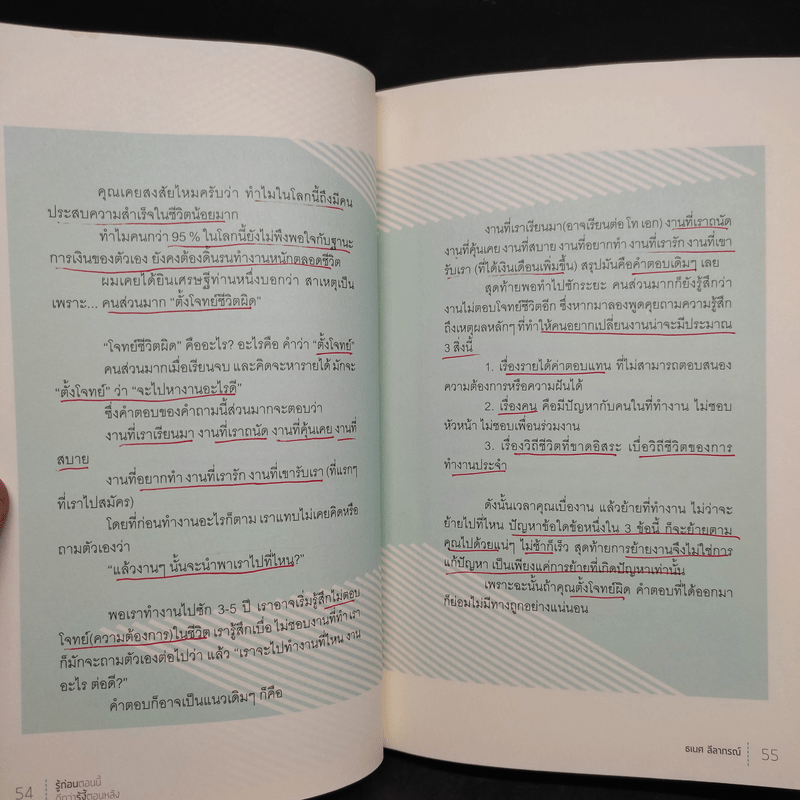 คุณเคยสงสัยไหมครับว่า ทำไมในโลกนี้ถึงมีคน
ประสบความสำเร็จในชีวิตน้อยมาก
ทำไมคนกว่า 95 % ในโลกนี้ยังไม่พึงพอใจกับฐานะ
การเงินของตัวเอง ยังคงต้องดิ้นรนทำงานหนักตลอดชีวิต
ผมเคยได้ยินเศรษฐีท่านหนึ่งบอกว่า สาเหตุเป็น
เพราะ... คนส่วนมาก “ตั้งโจทย์ชีวิตผิด”
“โจทย์ชีวิตผิด” คืออะไร? อะไรคือ คำว่า “ตั้งโจทย์”
คนส่วนมากเมื่อเรียนจบ และคิดจะหารายได้ มักจะ
“ตั้งโจทย์” ว่า “จะไปหางานอะไรดี”
ซึ่งคำตอบของคำถามนี้ส่วนมากจะตอบว่า
งานที่เราเรียนมา งานที่เราถนัด งานที่คุ้นเคย งานที่
สบาย
งานที่อยากทำ งานที่เรารัก งานที่เขารับเรา (ที่แรกๆ
ที่เราไปสมัคร)
โดยที่ก่อนทำงานอะไรก็ตาม เราแทบไม่เคยคิดหรือ
ถามตัวเองว่า
“แล้วงานๆ นั้นจะนำพาเราไปที่ไหน?”
พอเราทำงานไปซัก 3-5 ปี เราอาจเริ่มรู้สึกไม่ตอบ
โจทย์(ความต้องการ)ในชีวิต เรารู้สึกเบื่อ ไม่ชอบงานที่ทำ เรา
ก็มักจะถามตัวเองต่อไปว่า แล้ว “เราจะไปทำงานที่ไหน งาน
อะไร ต่อดี?”
คำตอบก็อาจเป็นแนวเดิมๆ ก็คือ
54
รู้ก่อนตอนนี้
ดีกว่ารู้งี้ตอนหลัง
งานที่เราเรียนมา(อาจเรียนต่อ โท เอก) งานที่เราถนัด
งานที่คุ้นเคย งานที่สบาย งานที่อยากทำ งานที่เรารัก งานที่เขา
รับเรา (ที่ได้เงินเดือนเพิ่มขึ้น) สรุปมันคือคำตอบเดิมๆ เลย
สุดท้ายพอทำไปซักระยะ คนส่วนมากก็ยังรู้สึกว่า
งานไม่ตอบโจทย์ชีวิตอีก ซึ่งหากมาลองพูดคุยถามความรู้สึก
ถึงเหตุผลหลักๆ ที่ทำให้คนอยากเปลี่ยนงานน่าจะมีประมาณ
3 สิ่งนี้
1. เรื่องรายได้ค่าตอบแทน ที่ไม่สามารถตอบสนอง
ความต้องการหรือความฝันได้
2. เรื่องคน คือมีปัญหากับคนในที่ทำงาน ไม่ชอบ
หัวหน้า ไม่ชอบเพื่อนร่วมงาน
3. เรื่องวิถีชีวิตที่ขาดอิสระ เบื่อวิถีชีวิตของการ
ทำงานประจำ
ดังนั้นเวลาคุณเบื่องาน แล้วย้ายที่ทำงาน ไม่ว่าจะ
ย้ายไปที่ไหน ปัญหาข้อใดข้อหนึ่งใน 3 ข้อนี้ ก็จะย้ายตาม
คุณไปด้วยแน่ๆ ไม่ช้าก็เร็ว สุดท้ายการย้ายงานจึงไม่ใช่การ
แก้ปัญหา เป็นเพียงแค่การย้ายที่เกิดปัญหาเท่านั้น
เพราะฉะนั้นถ้าคุณตั้งโจทย์ผิด คำตอบที่ได้ออกมา
ก็ย่อมไม่มีทางถูกอย่างแน่นอน
ธเนศ ลีลาภรณ์
55